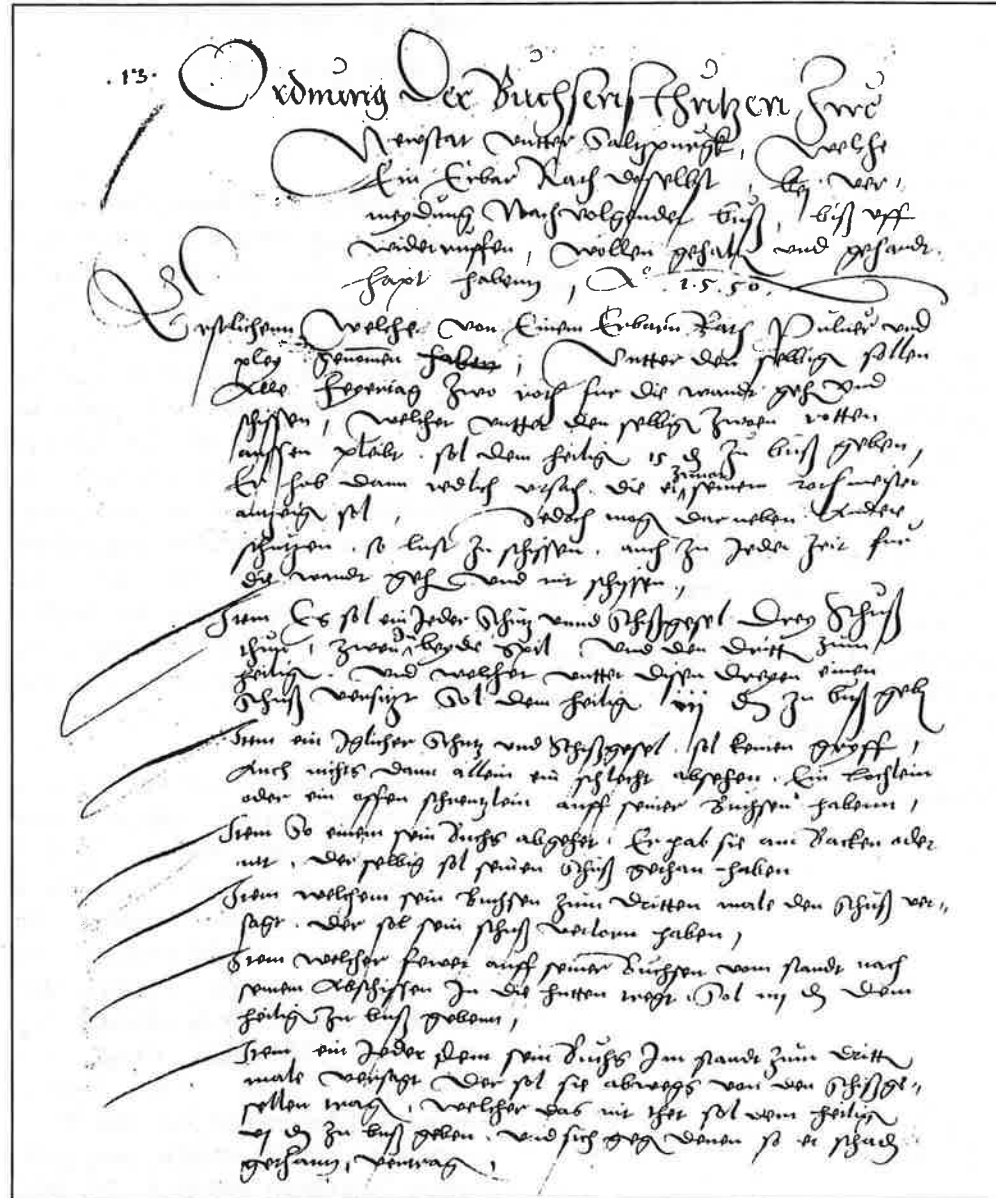 .13. Ordnung Der Buchsenschutzen Zwo
Newstat vntter Saltzpurgk, Welche
Ein Erbar Rath doselbst, bey ver,,
meydung Nachvolgender buß, biß vff
widerruffen, wollen gehalt und gehandt-
hapt habenn, Ao .1.5.50.
Erstlichenn, Welche von Einem Erbarn Rath Pulver und
pley genomen haben, Vntter den selbig sollen
Alle Feyertag Zwo roth fur die wandt geh Vnd
schissen, welcher vntter den selbig Zweien rotten
aussen pleibt. sol dem heilig 15 d zu buß geben,
Er hab dann redlich vrsach. die er zuvor seinem rothmeister
anzeig sol, Jedoch mag darneben Andere
schutzen. so lust zu schissen. auch zu Jeder Zeit fur
die wandt geh Vnd mit schissen,
Item Es sol ein Jeder Schutz vnnd Schißgesel Drey Schuß
thun, Zwen In beyde spil Vnd den Dritt zum
heilig. Vnd welcher vntter disen dreyen einen
Schuß versitzt Sol dem heilig iij d zu buß geb
Item ein Iglicher Schutz vnd Schißgesel. sol keinen
Auch nichts dann allein ein schlecht absehen. Ein lochlein
oder ein offen schrentzlein auff seiner Buchsen habenn,
Item So einem sein Buchs abgehet. Er hab sie am Backen oder
nit, der selbig sol seinen schuß gethan haben
Item welchem sein Buchsen zum dritten male den schuß ver,,
sagt. Der sol sein schuß verlorn haben,
Item welcher fewer auff seiner Buchsen vom standt nach
seinem Abschissen In die hutten tregt. Sol iij d dem
heilig zu buß gebenn,
Item ein Jeder dem sein Buchs Im standt zum dritt
male versagt Der sol sie abwegs von den Schißge,,
sellen trag, welcher das nit thet sol dem heilig
vj d zu buß geben. vnd sich geg denen so er schad
gethann, vertrag,